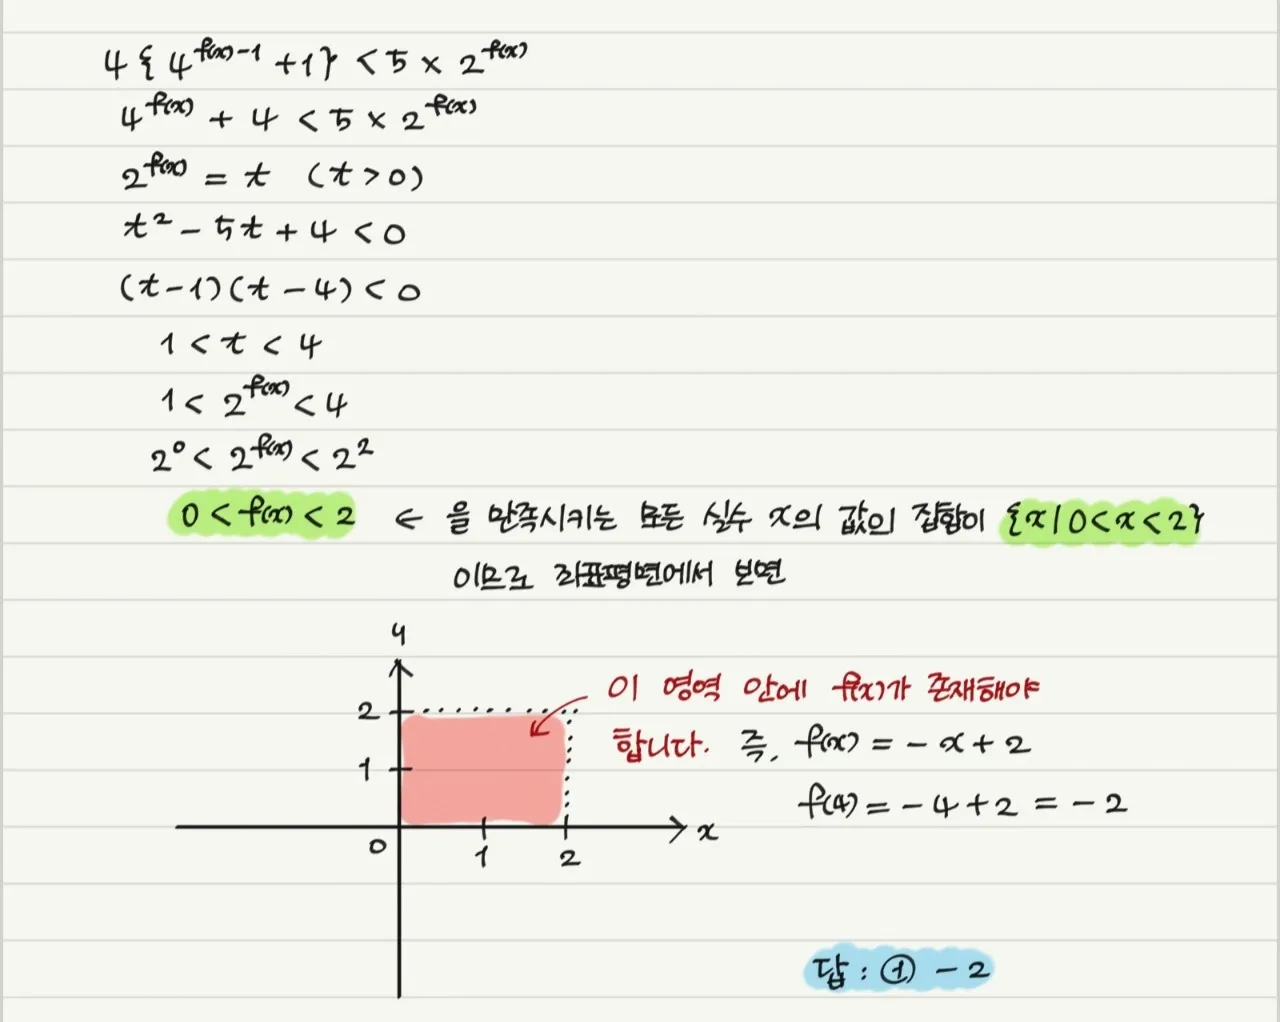 4{4^{f(x)-1}+1} < 5 × 2^{f(x)}
4^{f(x)} + 4 < 5 × 2^{f(x)}
2^{f(x)} = t (t > 0)
t² - 5t + 4 < 0
(t-1)(t-4) < 0
1 < t < 4
1 < 2^{f(x)} < 4
2⁰ < 2^{f(x)} < 2²
0 < f(x) < 2 ← 을 만족시키는 모든 실수 x의 값의 집합이 {x|0<x<2}
이므로 좌표평면에서 보면
y
이 영역 안에 f(x)가 존재해야
2
합니다. 즉, f(x) = -x+2
1
f(4) = -4+2 = -2
x
0
1 2
답 : ① -2